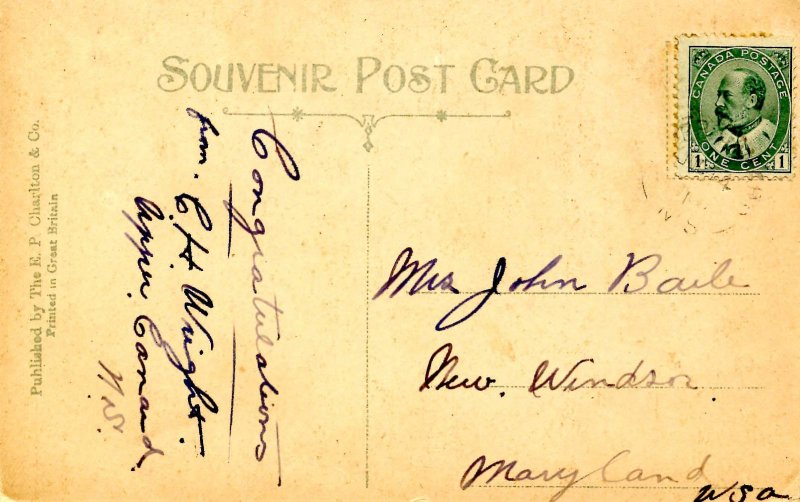 SOUVENIR POST CARD
CANADA POSTAGE
1 ONE CENT 1
Published by The E. P. Charlton & Co.
Printed in Great Britain
Congratulations
from. C. H. Wright.
Upper. Canard.
N.S.
Mrs John Baile
New. Windsor.
Maryland
USA